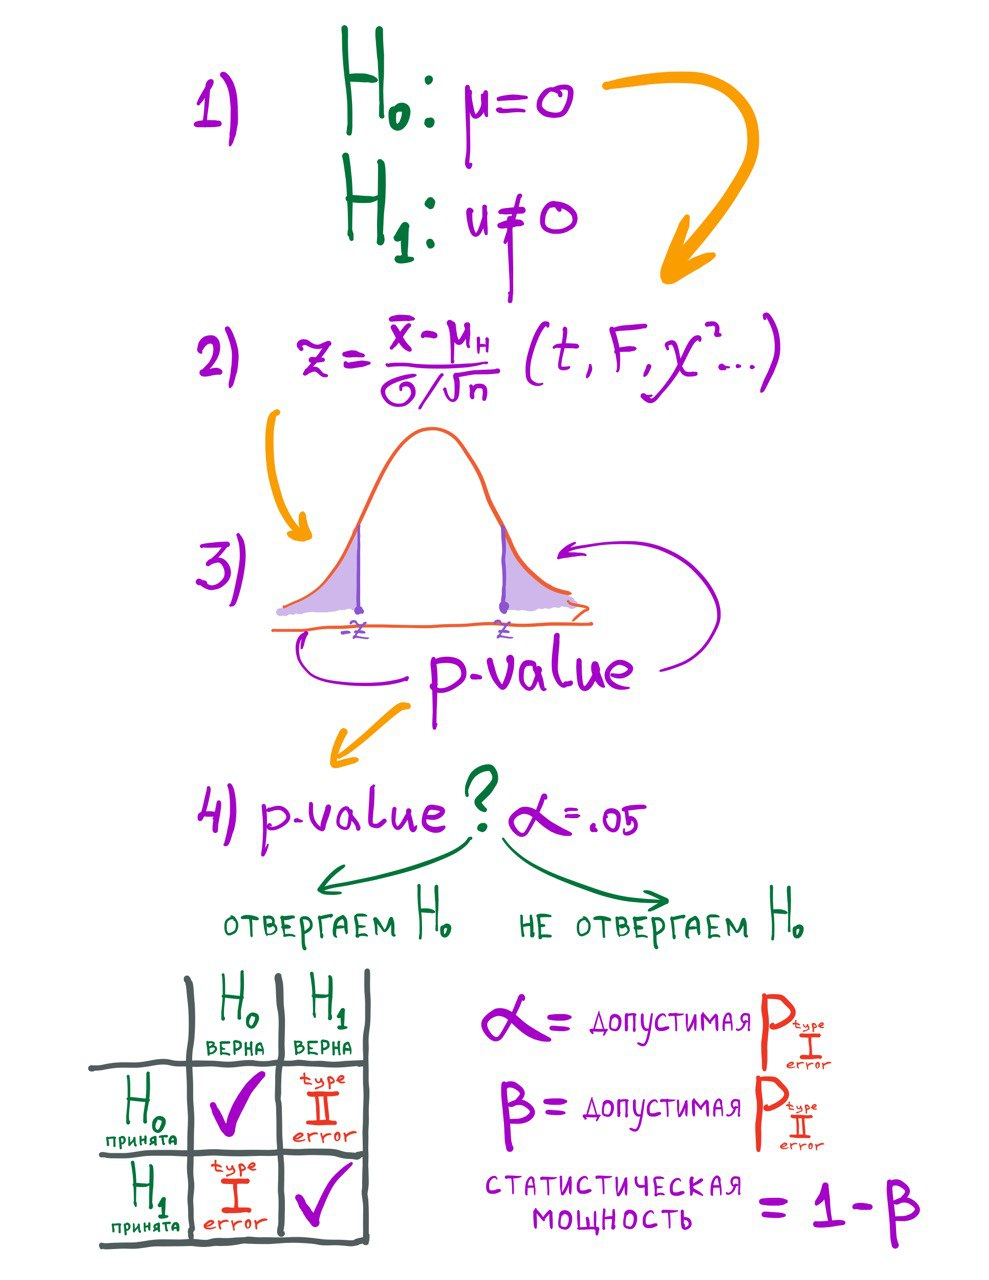 1) H₀: μ=0
H₁: μ≠0
2) z = (x̄-μ_H)/(σ/√n) (t, F, χ²...)
3)
-z z
p-value
4) p-value ? α=.05
ОТВЕРГАЕМ H₀ НЕ ОТВЕРГАЕМ H₀
H₀ ВЕРНА H₁ ВЕРНА
H₀ ПРИНЯТА ✓ type II error
H₁ ПРИНЯТА type I error ✓
α= ДОПУСТИМАЯ P type I error
β= ДОПУСТИМАЯ P type II error
СТАТИСТИЧЕСКАЯ
МОЩНОСТЬ = 1-β